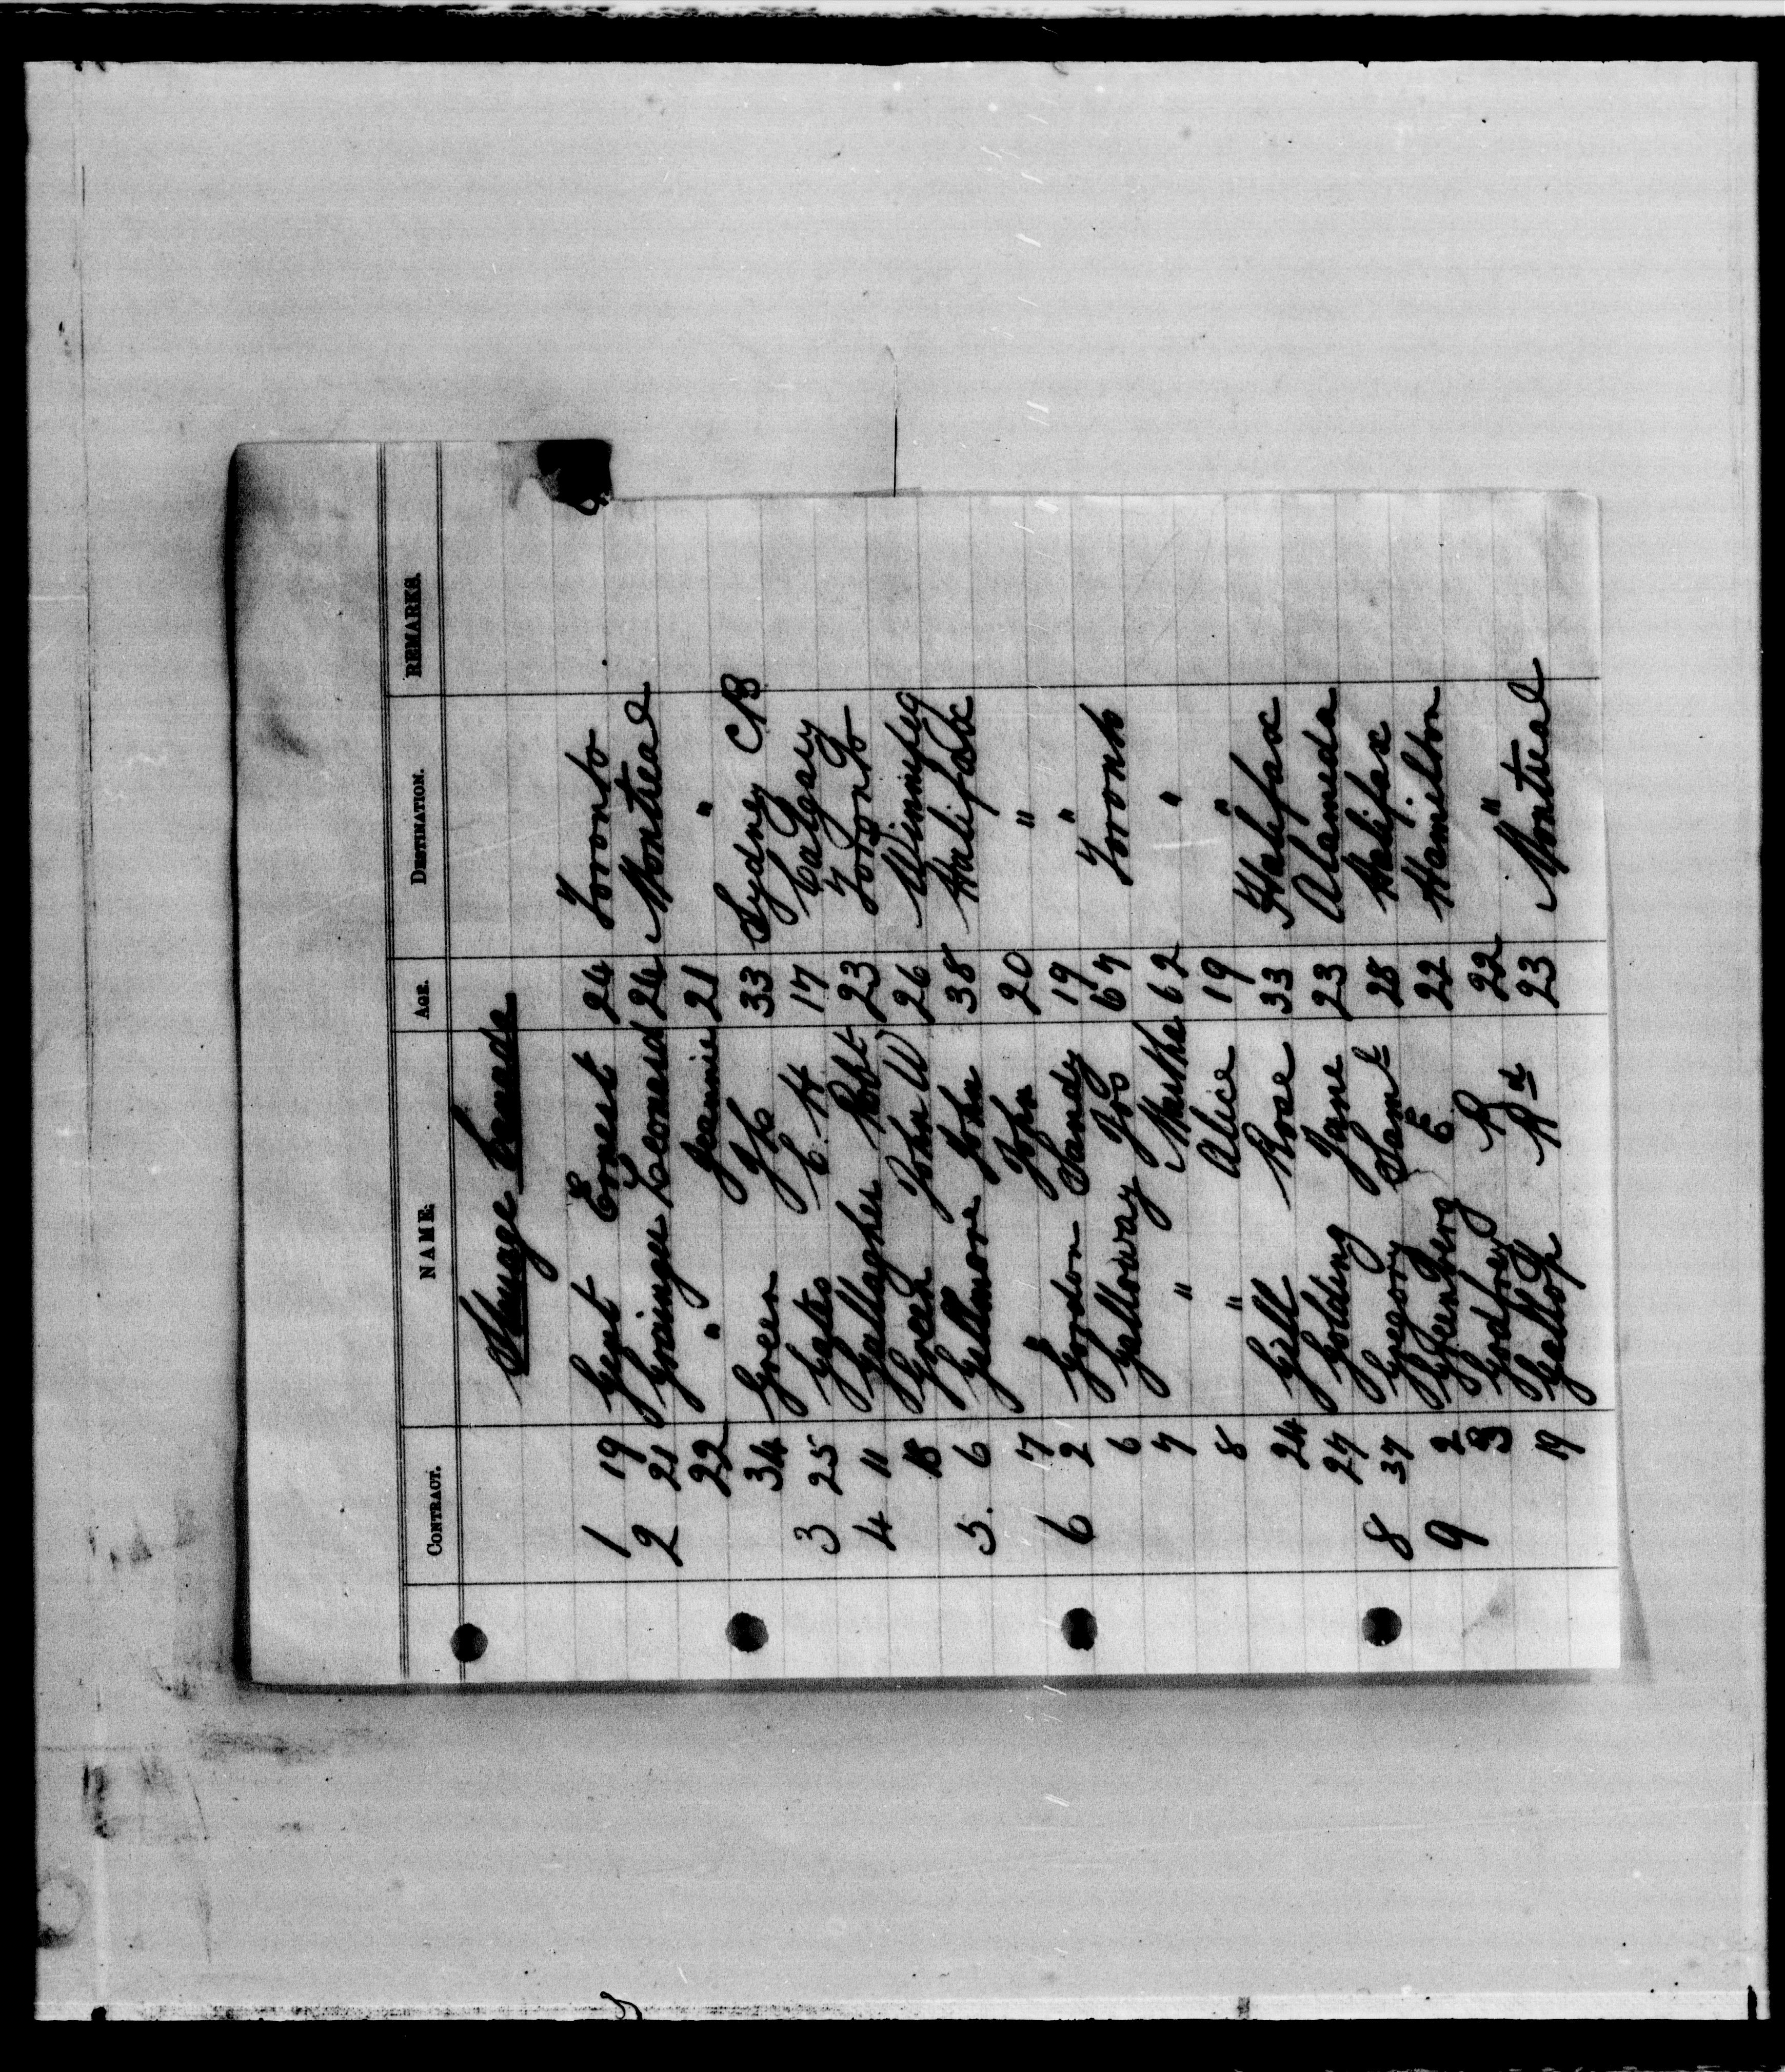 CONTRACT. NAME. AGE. DESTINATION. REMARKS.
Steerage Canada
1 19 Gent Ernest 24 Toronto
2 21 Grainger Leonard 24 Montreal
22 " Jeannie 21 "
34 Green 33 Sydney CB
3 25 Gates C. H 17 Calgary
4 11 Gallagher Robt 23 Toronto
18 John W 26 Winnipeg
5. 6 Gillmore John 38 Halifax
17 John 20 "
6 2 Gordon Sandy 19 "
6 Galloway Jos 67 Toronto
7 " Martha 62 "
8 " Alice 19 "
24 Gill Rose 33 Halifax
27 Golding Jane 23 Alameda
8 37 Gregory Saml 28 Halifax
9 2 E 22 Hamilton
3 Godfrey R 22 "
19 Gallop Rd 23 Montreal